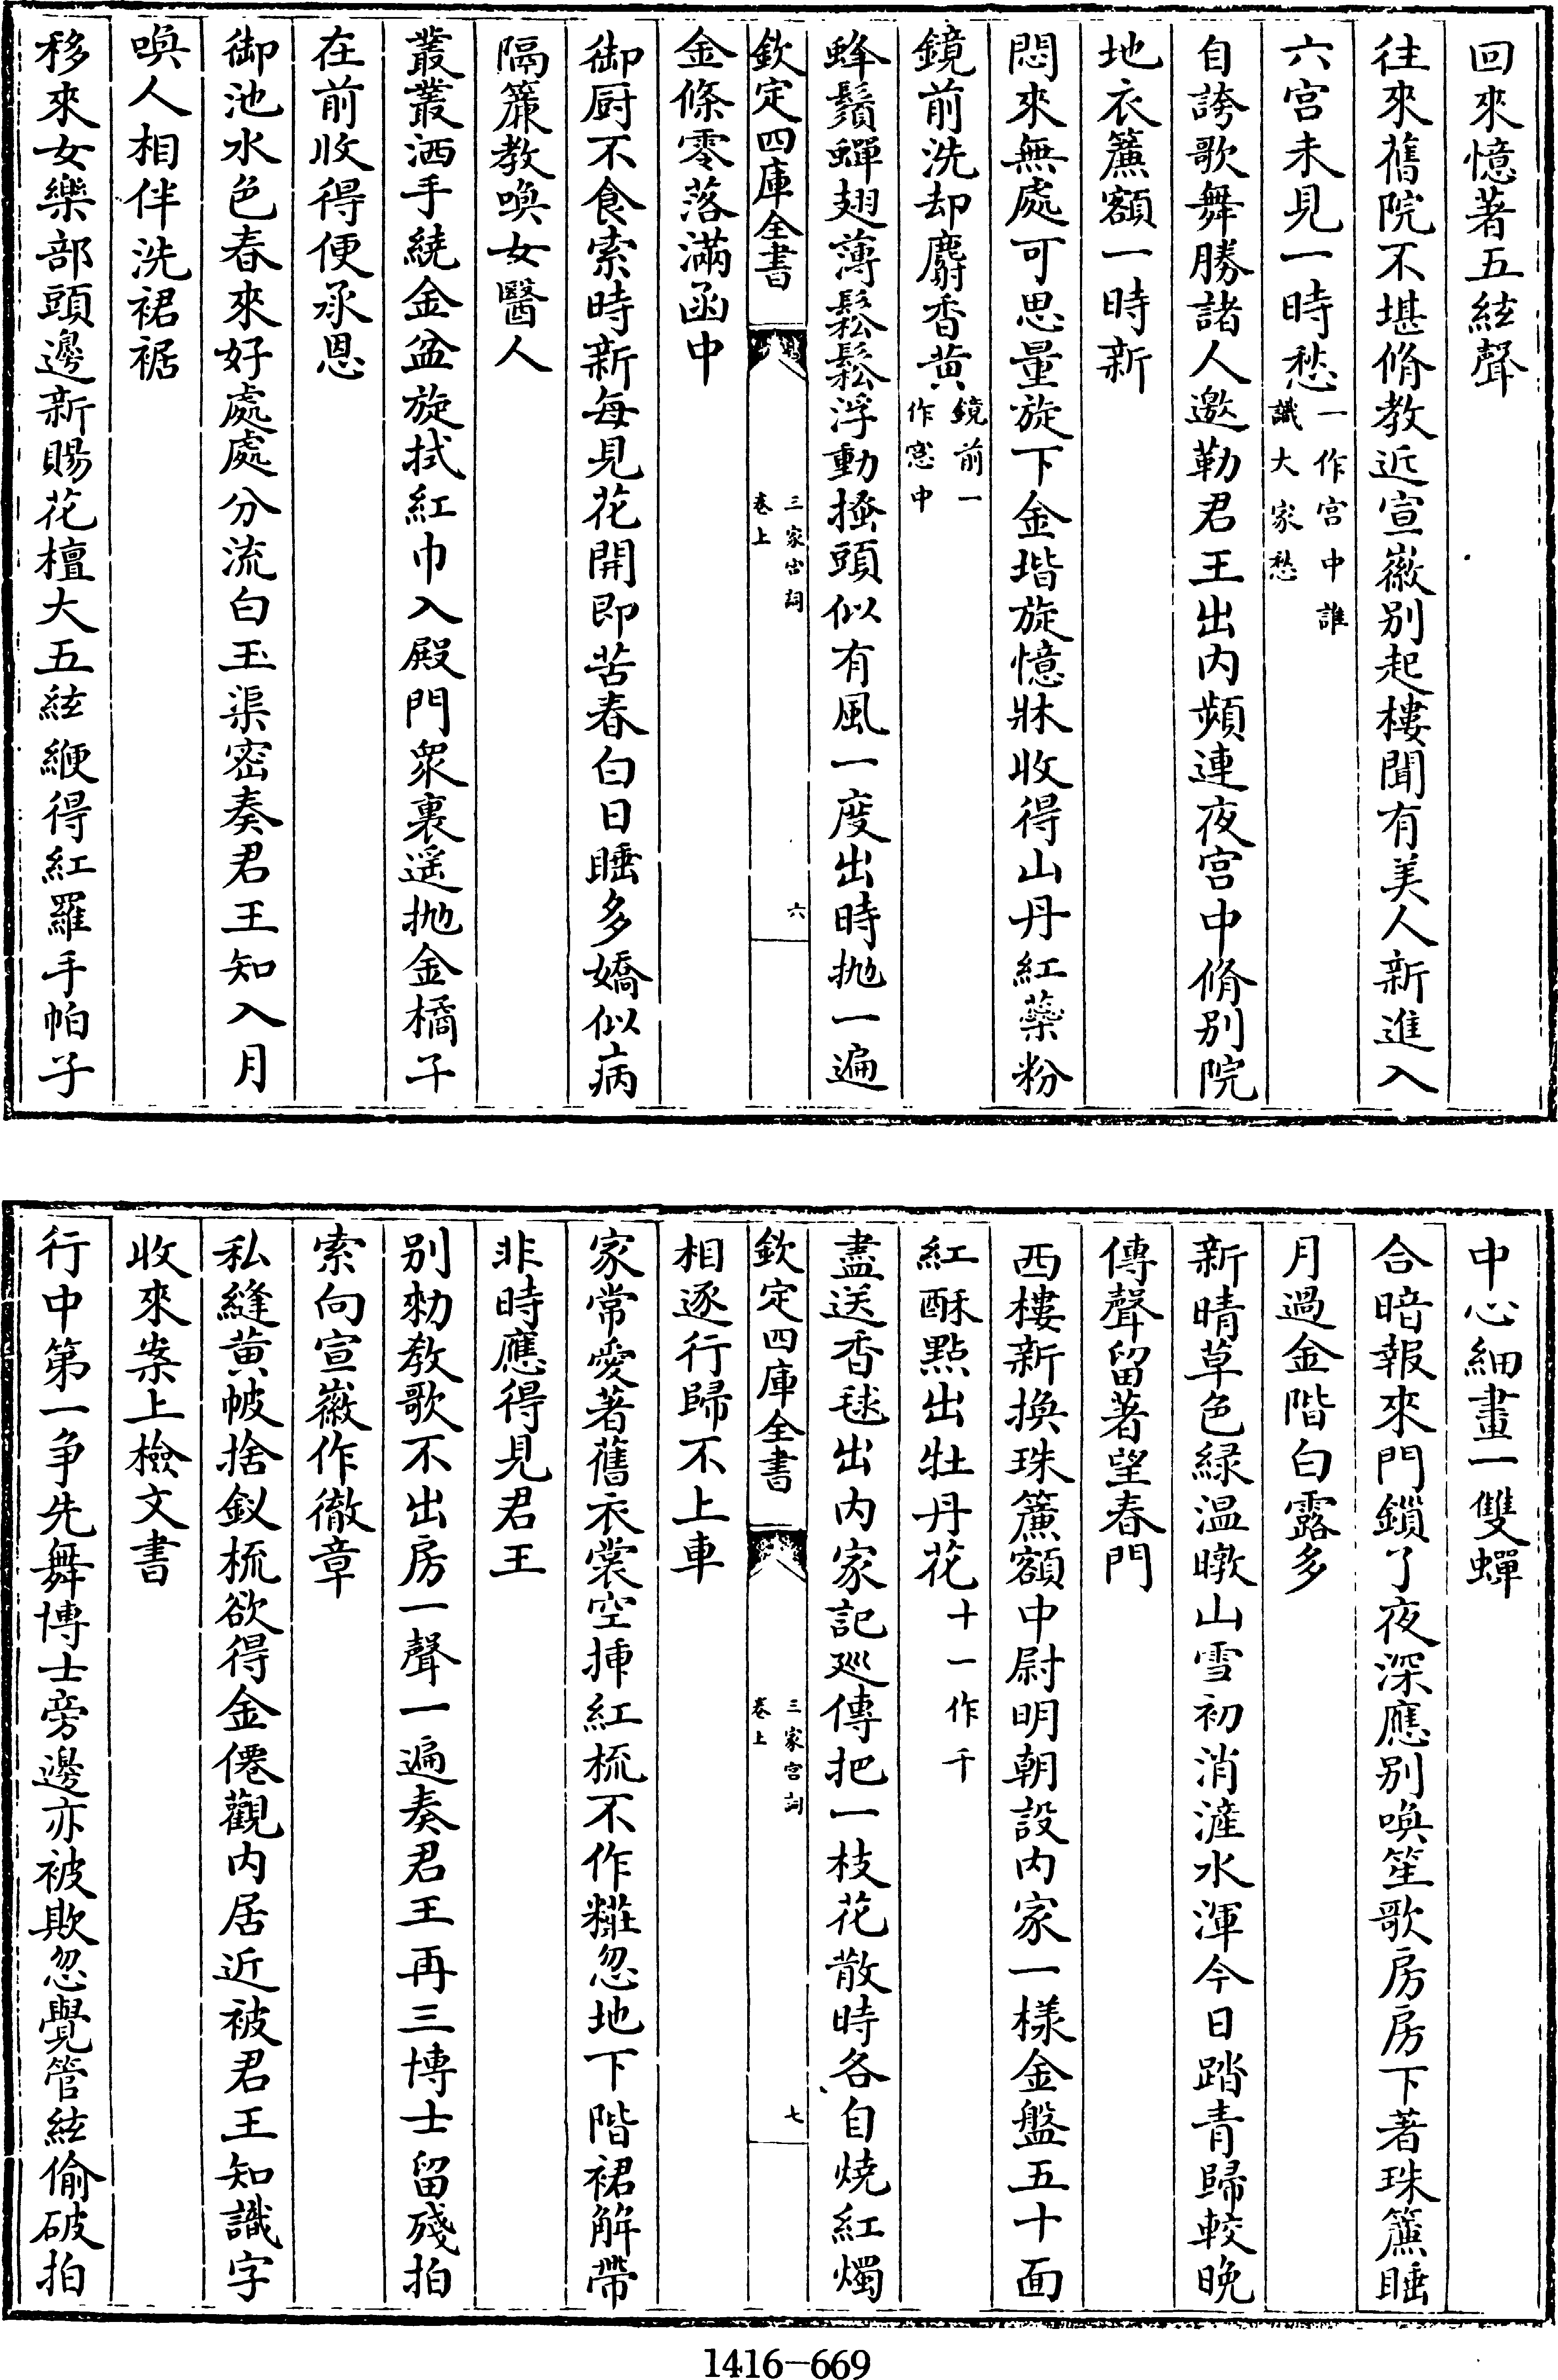 回來憶著五絃聲
往來舊院不堪脩教近宣徽别起樓聞有美人新進入
六宫未見一時愁一作宫中誰識大家愁
自誇歌舞勝諸人邀勒君王出内頻連夜宫中脩别院
地衣簾額一時新
悶來無處可思量旋下金堦旋憶牀收得山丹紅蘂粉
鏡前洗却麝香黄鏡前一作窓中
蜂鬚蟬翅薄鬆鬆浮動搔頭似有風一度出時抛一遍
欽定四庫全書
三家宫詞
卷上
六
金條零落滿函中
御厨不食索時新每見花開即苦春白日睡多嬌似病
隔簾教喚女醫人
叢叢洒手繞金盆旋拭紅巾入殿門衆裏遥抛金橘子
在前收得便承恩
御池水色春來好處處分流白玉渠密奏君王知入月
喚人相伴洗裙裾
移來女樂部頭邊新賜花檀大五絃緶得紅羅手帕子
中心細畫一雙蟬
合暗報來門鎖了夜深應别喚笙歌房房下著珠簾睡
月過金階白露多
新晴草色緑温暾山雪初消滻水渾今日踏青歸較晚
傳聲留著望春門
西樓新換珠簾額中尉明朝設内家一様金盤五十面
紅酥點出牡丹花十一作千
盡送香毬出内家記巡傳把一枝花散時各自燒紅燭
欽定四庫全書
三家宫詞
卷上
七
相逐行歸不上車
家常愛著舊衣裳空揷紅梳不作糚忽地下階裙解帶
非時應得見君王
别勑教歌不出房一聲一遍奏君王再三博士留殘拍
索向宣徽作徹章
私縫黄帔捨釵梳欲得金僊觀内居近被君王知識字
收來案上檢文書
行中第一争先舞博士旁邊亦被欺忽覺管絃偷破拍
1416-669